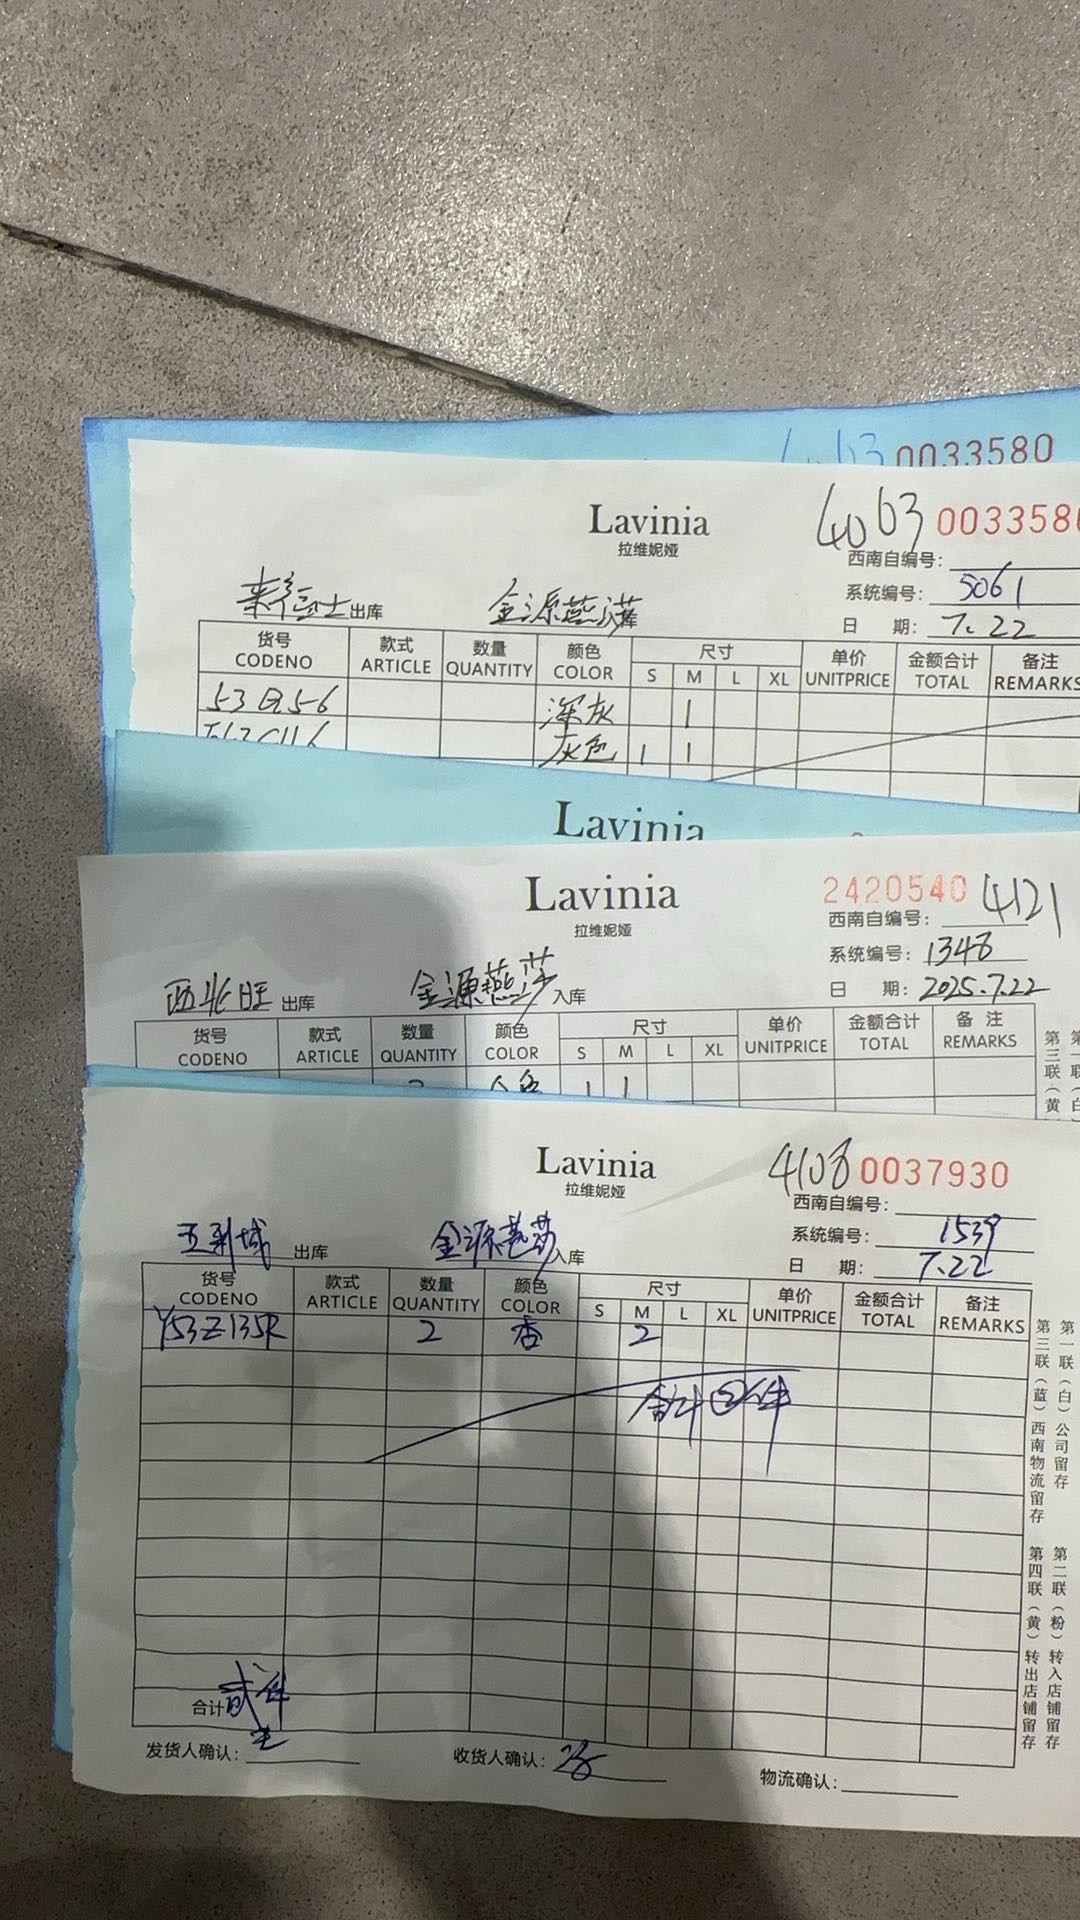 0033580
Lavinia
拉维妮娅
4063 003358
西南自编号:
系统编号: 5061
日 期: 7.22
出库 金源燕莎
货号 款式 数量 颜色 尺寸 单价 金额合计 备注
CODENO ARTICLE QUANTITY COLOR S M L XL UNITPRICE TOTAL REMARKS
深灰 1
灰色 1 1
Lavinia
Lavinia
拉维妮娅
2420540 4121
西南自编号:
系统编号: 1348
日 期: 2025.7.22
西北旺 出库 金源燕莎 入库
货号 款式 数量 颜色 尺寸 单价 金额合计 备注
CODENO ARTICLE QUANTITY COLOR S M L XL UNITPRICE TOTAL REMARKS
1 1
第三联(黄
Lavinia
拉维妮娅
4108 0037930
西南自编号:
系统编号: 1539
日 期: 7.22
五彩城 出库 金源燕莎 入库
货号 款式 数量 颜色 尺寸 单价 金额合计 备注
CODENO ARTICLE QUANTITY COLOR S M L XL UNITPRICE TOTAL REMARKS
Y53Z135R 2 杏 2
合计②件
合计 贰件
发货人确认: 收货人确认: 物流确认:
第一联(白)公司留存
第二联(粉)转入店铺留存
第三联(蓝)西南物流留存
第四联(黄)转出店铺留存